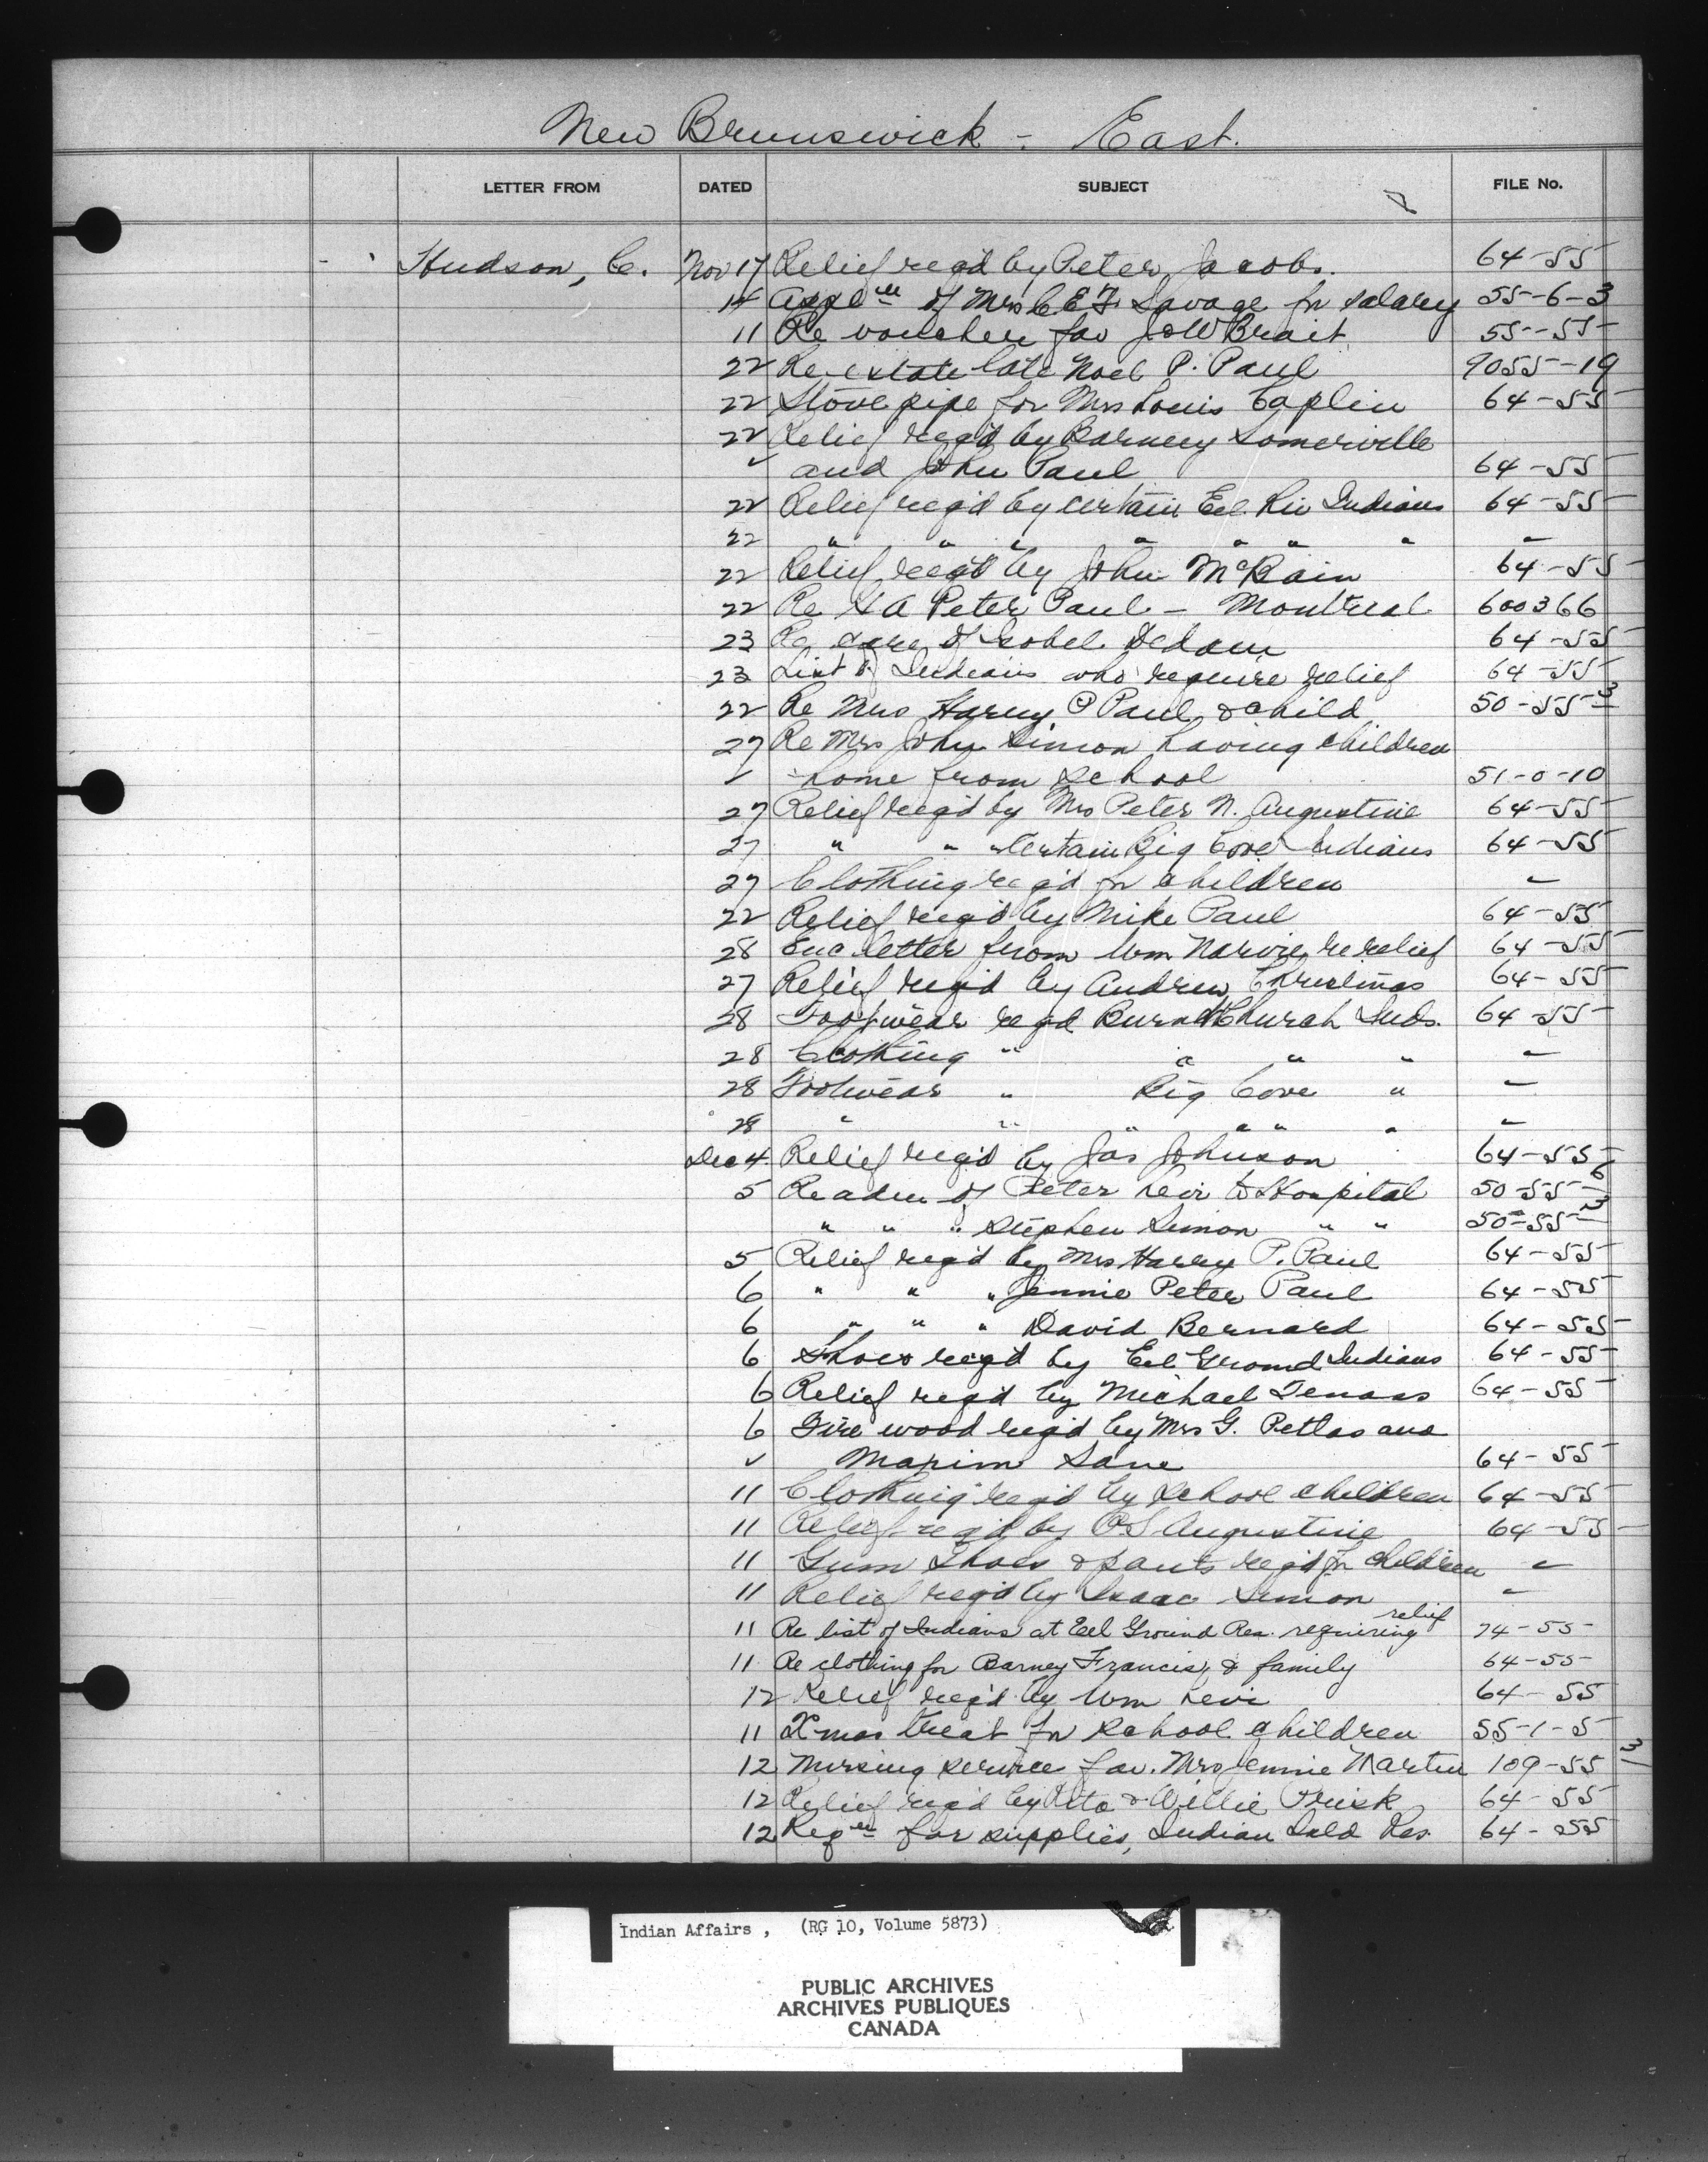 New Brunswick - East.
LETTER FROM DATED SUBJECT FILE No.
Hudson, C. Nov 17 Relief reqd by Peter Jacobs. 64-55
14 of Mrs C E F Savage for salary 55-6-3
11 Re voucher fav J W Brait 55-55
22 Re estate late Noel P. Paul 9055-19
22 Stove pipe for Mrs Louis Caplin 64-55
22 Relief req'd by Barney Somerville
" and John Paul 64-55
22 Relief req'd by certain Eel Riv Indians 64-55
22 " " " " " " " "
22 Relief req'd by John McBain 64-55
22 Re Peter Paul - Montreal 600366
23 Re care of Isobel Dedam 64-55
23 List of Indians who require relief 64-55
22 Re Mrs Harry P Paul & child 50-55 3
27 Re Mrs John Simon having children
" home from school 51-0-10
27 Relief req'd by Mrs Peter N. Augustine 64-55
27 " " " Certain Big Cove Indians 64-55
27 Clothing req'd for children "
22 Relief req'd by Mike Paul 64-55
28 Enc letter from Wm Narvie re relief 64-55
27 Relief req'd by Andrew Christmas 64-55
28 Footwear reqd Burnt Church Inds. 64-55
28 Clothing " " " " "
28 Footwear " Big Cove " "
28 " " " " " "
Dec 4 Relief req'd by Jas Johnson 64-55
5 Re adm of Peter Levi to Hospital 50-55 6
" " " Stephen Simon " " 50-55 3
5 Relief req'd by Mrs Harry P. Paul 64-55
6 " " " Jennie Peter Paul 64-55
6 " " " David Bernard 64-55
6 Shoes req'd by Eel Ground Indians 64-55
6 Relief req'd by Michael Tenass 64-55
6 Fire wood req'd by Mrs G. and
" Maxim Sane 64-55
11 Clothing req'd by School children 64-55
11 Relief req'd by P S Augustine 64-55
11 Gum Shoes & pants req'd for children "
11 Relief req'd by Isaac Simon "
11 Re list of Indians at Eel Ground Res. requiring relief 74-55
11 Re clothing for Barney Francis & family 64-55
12 Relief req'd by Wm Levi 64-55
11 X'mas treat for school children 55-1-5
12 Nursing service fav. Mrs Jennie Martin 109-55 3
12 Relief req'd by Rita & Willie Prisk 64-55
12 Reqn for supplies, Indian Isld Res. 64-55
Indian Affairs, (RG 10, Volume 5873)
PUBLIC ARCHIVES
ARCHIVES PUBLIQUES
CANADA